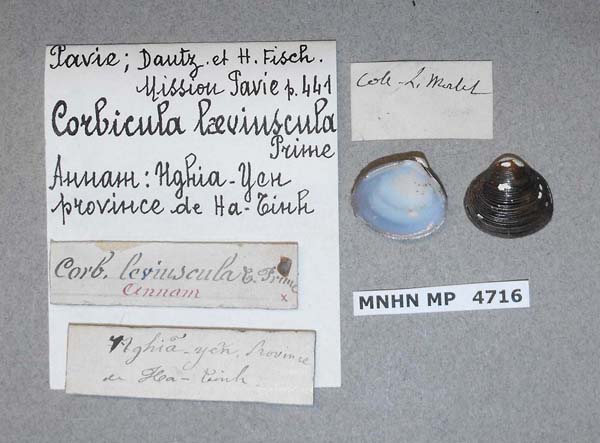 Pavie; Dautz. et H. Fisch.
Mission Pavie p. 441
Corbicula læviuscula
Prime
Annam: Nghia-Yen
province de Ha-Tinh
Corb. leviuscula T. Prime
Annam
x
Nghiã-yên. Province
de Ha-Tinh.
Coll. L. Morlet
MNHN MP 4716